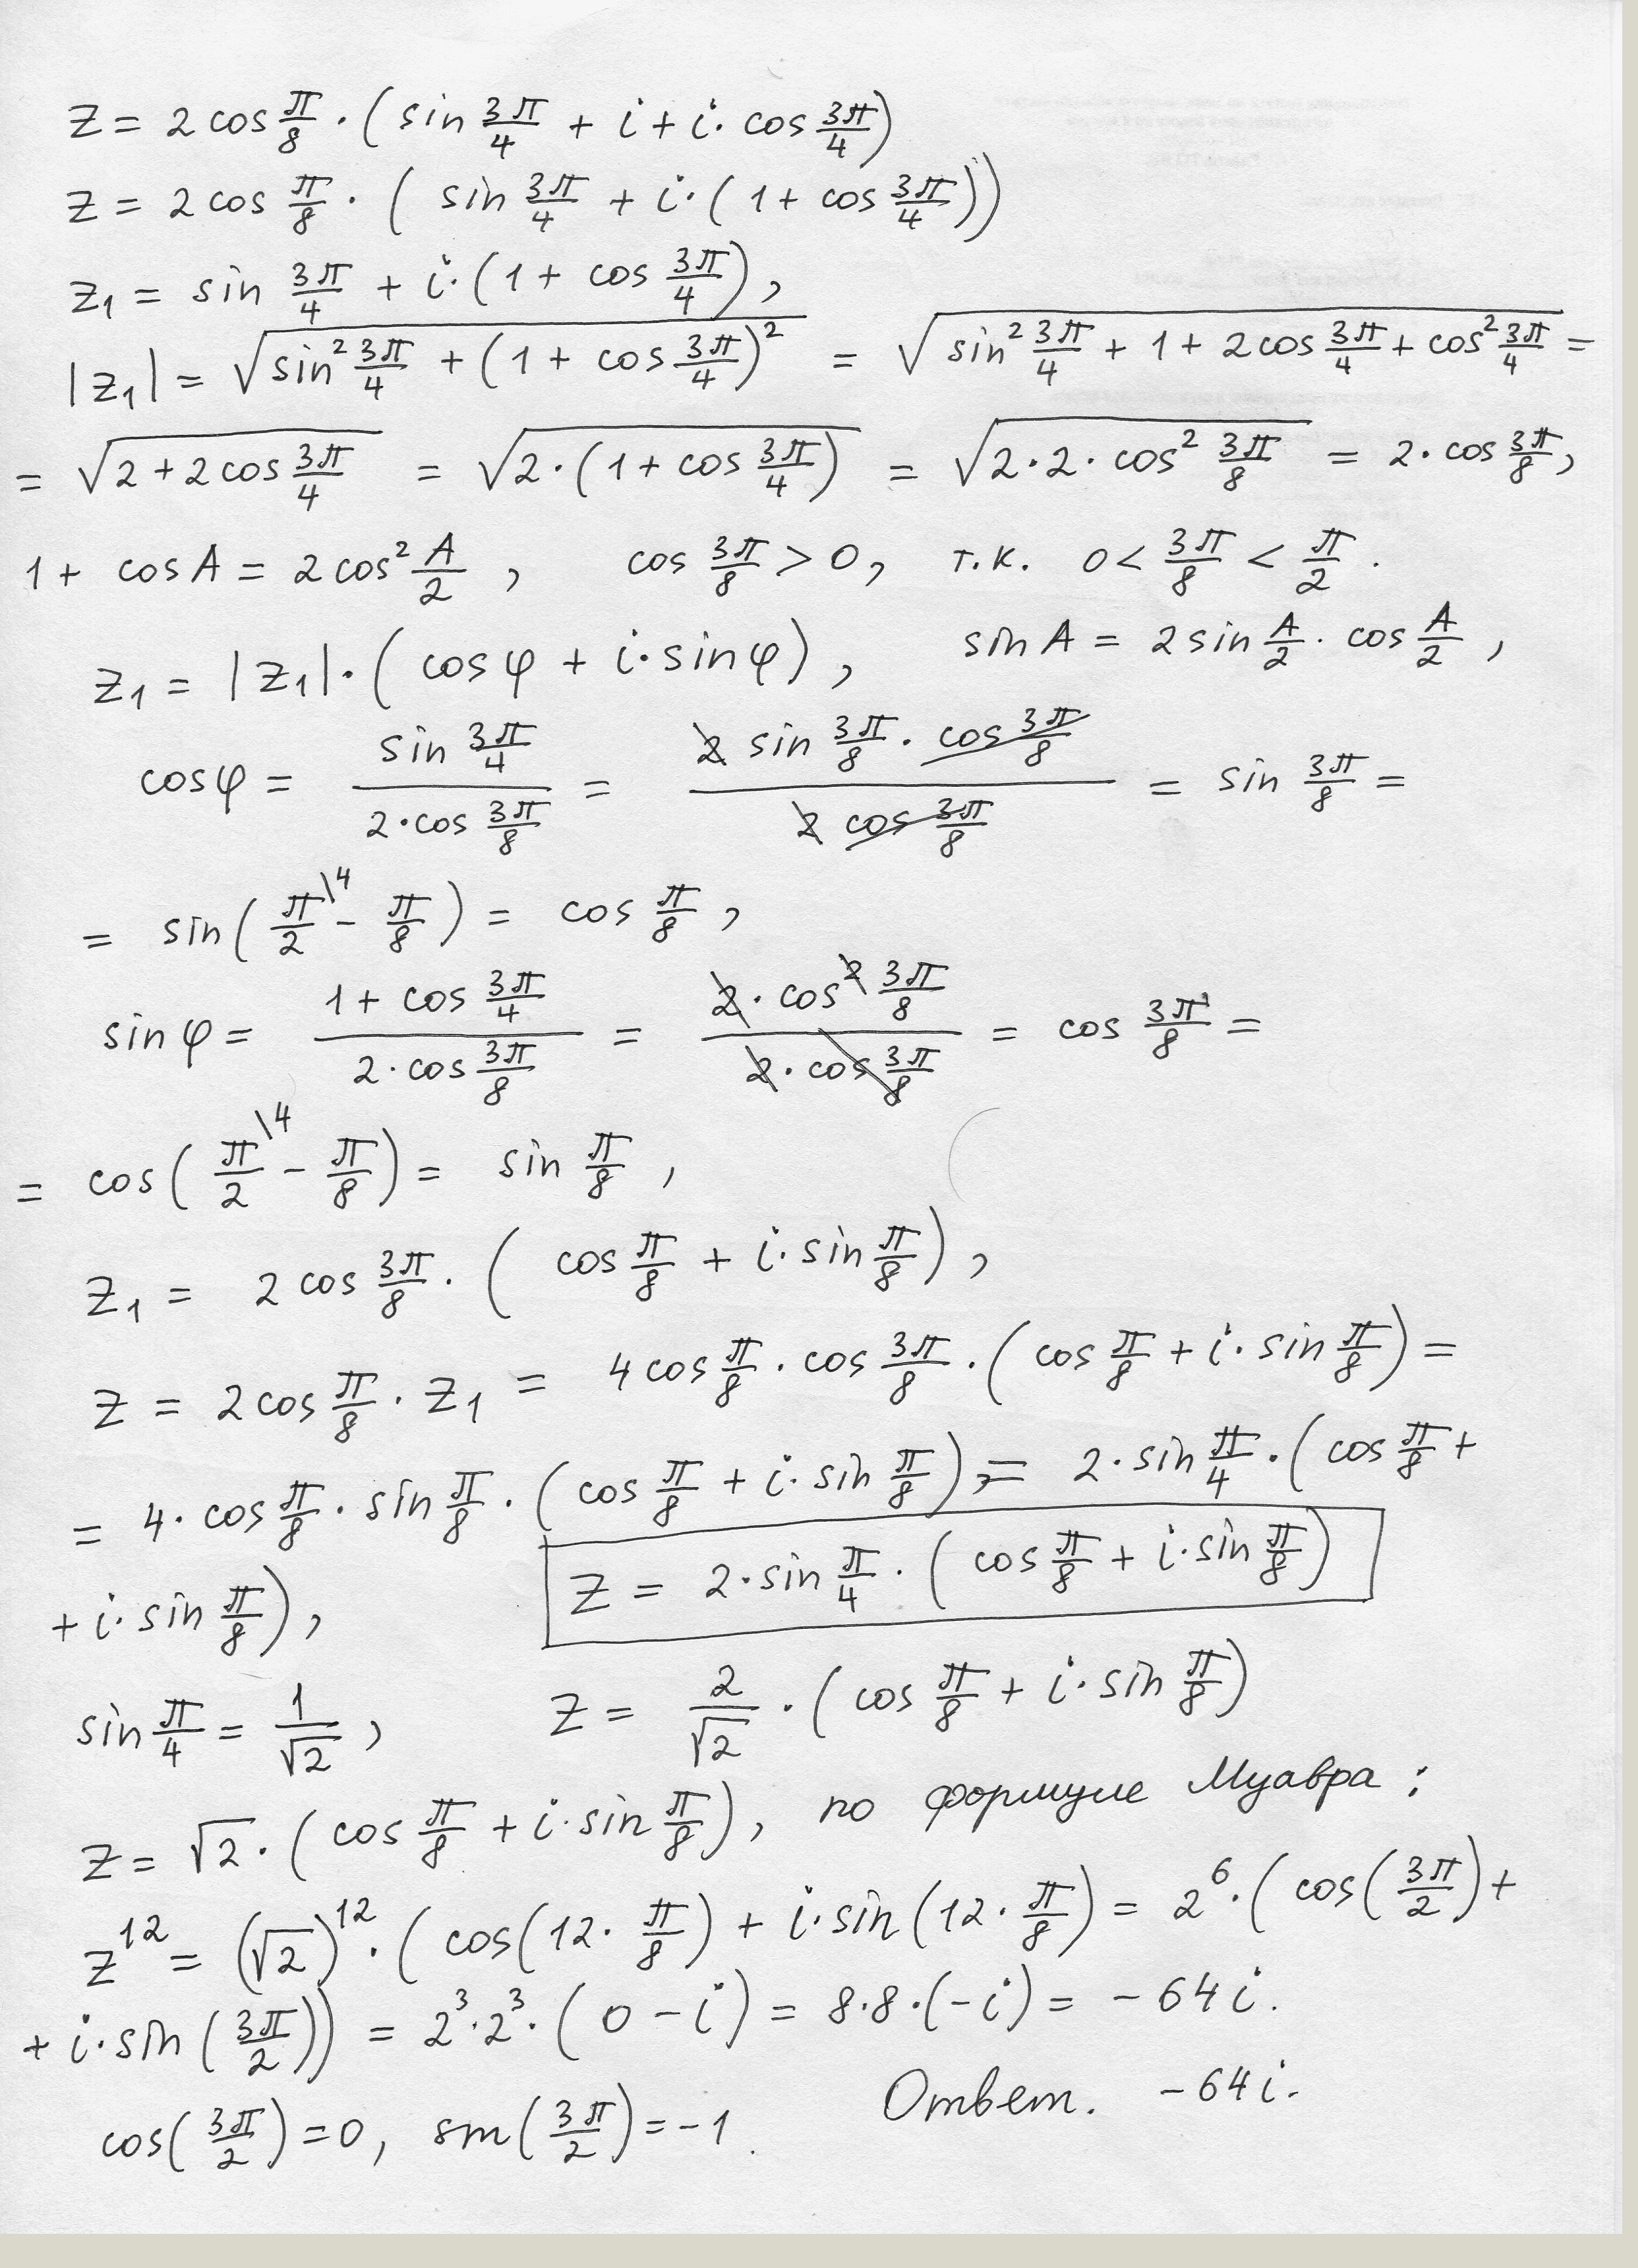 z = 2 cos π/8 · (sin 3π/4 + i + i · cos 3π/4)
z = 2 cos π/8 · (sin 3π/4 + i · (1 + cos 3π/4))
z₁ = sin 3π/4 + i · (1 + cos 3π/4),
|z₁| = √(sin² 3π/4 + (1 + cos 3π/4)²) = √(sin² 3π/4 + 1 + 2 cos 3π/4 + cos² 3π/4) =
= √(2 + 2 cos 3π/4) = √(2 · (1 + cos 3π/4)) = √(2 · 2 · cos² 3π/8) = 2 · cos 3π/8,
1 + cos A = 2 cos² A/2, cos 3π/8 > 0, т.к. 0 < 3π/8 < π/2.
z₁ = |z₁| · (cos φ + i · sin φ), sin A = 2 sin A/2 · cos A/2,
cos φ = (sin 3π/4)/(2 · cos 3π/8) = (2 sin 3π/8 · cos 3π/8)/(2 cos 3π/8) = sin 3π/8 =
= sin(π/2 \4 − π/8) = cos π/8,
sin φ = (1 + cos 3π/4)/(2 · cos 3π/8) = (2 · cos² 3π/8)/(2 · cos 3π/8) = cos 3π/8 =
= cos(π/2 \4 − π/8) = sin π/8,
z₁ = 2 cos 3π/8 · (cos π/8 + i · sin π/8),
z = 2 cos π/8 · z₁ = 4 cos π/8 · cos 3π/8 · (cos π/8 + i · sin π/8) =
= 4 · cos π/8 · sin π/8 · (cos π/8 + i · sin π/8) = 2 · sin π/4 · (cos π/8 +
+ i · sin π/8), z = 2 · sin π/4 · (cos π/8 + i · sin π/8)
sin π/4 = 1/√2, z = 2/√2 · (cos π/8 + i · sin π/8)
z = √2 · (cos π/8 + i · sin π/8), по формуле Муавра :
z¹² = (√2)¹² · (cos(12 · π/8) + i · sin(12 · π/8) = 2⁶ · (cos(3π/2) +
+ i · sin(3π/2)) = 2³ · 2³ · (0 − i) = 8 · 8 · (−i) = −64i.
cos(3π/2) = 0, sin(3π/2) = −1. Ответ. −64i.